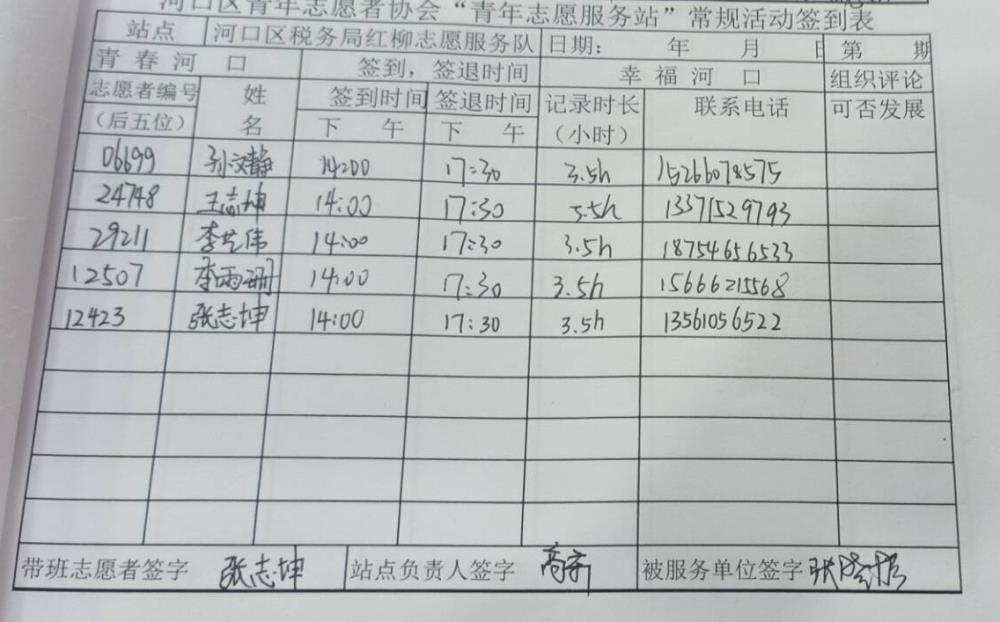 河口区青年志愿者协会“青年志愿服务站”常规活动签到表
站点 河口区税务局红柳志愿服务队 日期： 年 月 日 第 期
青春河口 签到，签退时间 幸福河口 组织评论
志愿者编号（后五位） 姓名 签到时间 下午 签退时间 下午 记录时长（小时） 联系电话 可否发展
06699 孙文静 14:00 17:30 3.5h 15266078575
24748 王志坤 14:00 17:30 3.5h 13371529793
29211 李艺伟 14:00 17:30 3.5h 18754656533
12507 李雨珊 14:00 17:30 3.5h 15666215568
12423 张志坤 14:00 17:30 3.5h 13561056522
带班志愿者签字 张志坤 站点负责人签字 被服务单位签字